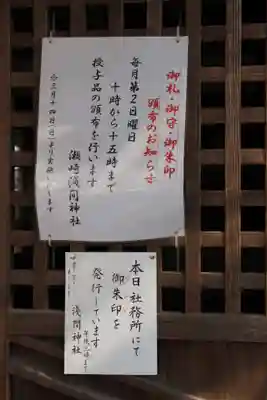 御札・御守・御朱印
頒布のお知らせ
毎月第2日曜日
十時から十五時まで
授与品の頒布を行います
瀬崎浅間神社
本日社務所にて
御朱印を
発行しています
午後三時まで
浅間神社